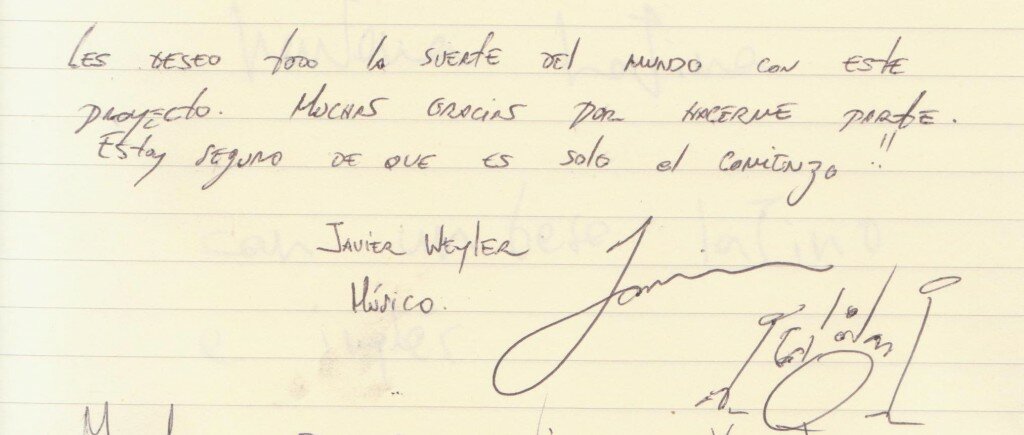 LES DESEO todo la SUERTE DEL MUNDO CON ESTE
PROYECTO. MUCHAS GRACIAS POR HACERME PARTE.
Estoy SEGURO DE QUE ES SOLO el COMIENZO!!
JAVIER WEYLER
MÚSICO.